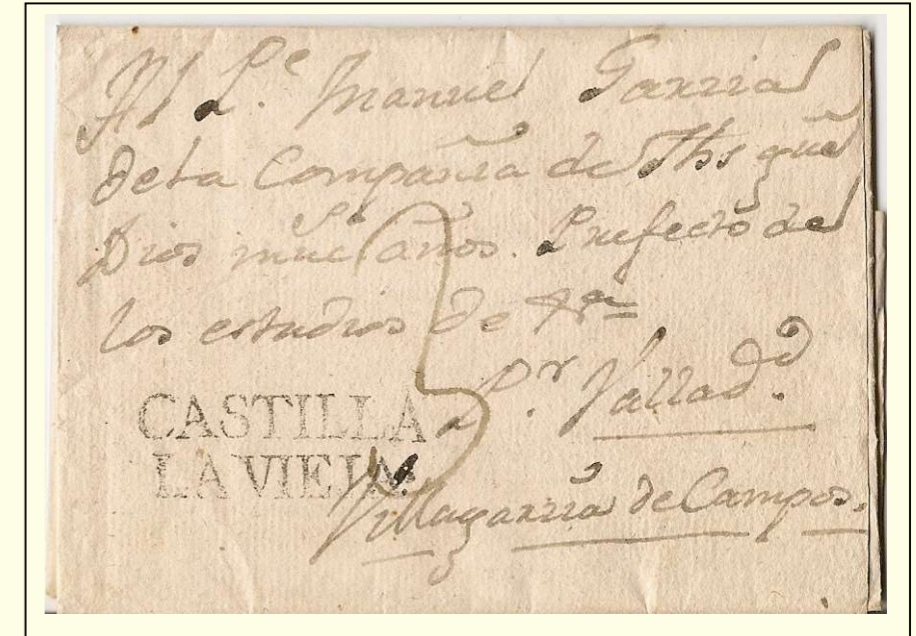 Al P.e Manuel Garzia
dela Compañia de Jhs que
Dios gue ms años. Prefecto de
los estudios de
P.r Vallad.d
CASTILLA
LA VIEJA
Villagarzia de Campos.